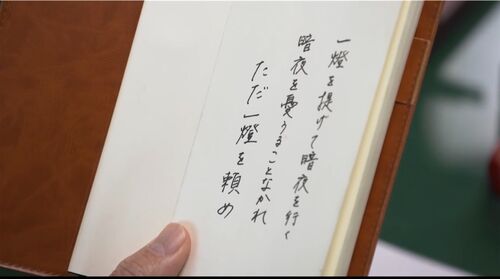 一燈を提げて暗夜を行く
暗夜を憂うることなかれ
ただ一燈を頼め